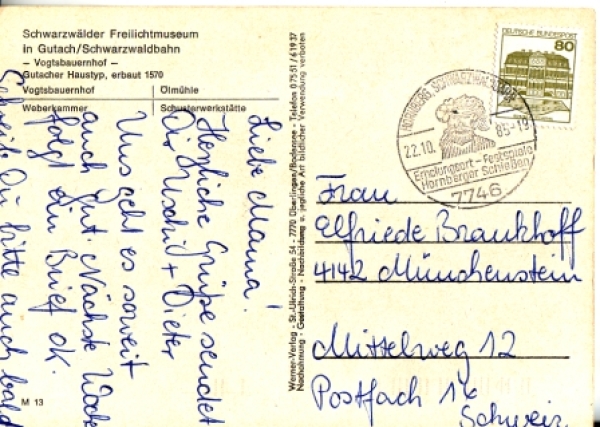 Schwarzwälder Freilichtmuseum
in Gutach/Schwarzwaldbahn
– Vogtsbauernhof –
Gutacher Haustyp, erbaut 1570
Vogtsbauernhof
Ölmühle
Weberkammer
Schusterwerkstätte
Liebe Mama!
Herzliche Grüße sendet
Dir Uschi + Dieter
Uns geht es soweit
auch gut. Nächste Woche
folgt ein Brief ok.
Schreib Du bitte auch bald
M 13
Werner-Verlag - St.-Ulrich-Straße 54 - 7770 Überlingen/Bodensee - Telefon 07551/61937
Nachahmung - Gestaltung - Nachbildung u. jegliche Art bildlicher Verwendung verboten
DEUTSCHE BUNDESPOST
80
HORNBERG, SCHWARZWALDBAHN
22.10. 85-19
Erholungsort - Festspiele
Hornberger Schießen
7746
Frau
Elfriede Brankhoff
4142 Münchenstein
Mittelweg 12
Postfach 16
Schweiz